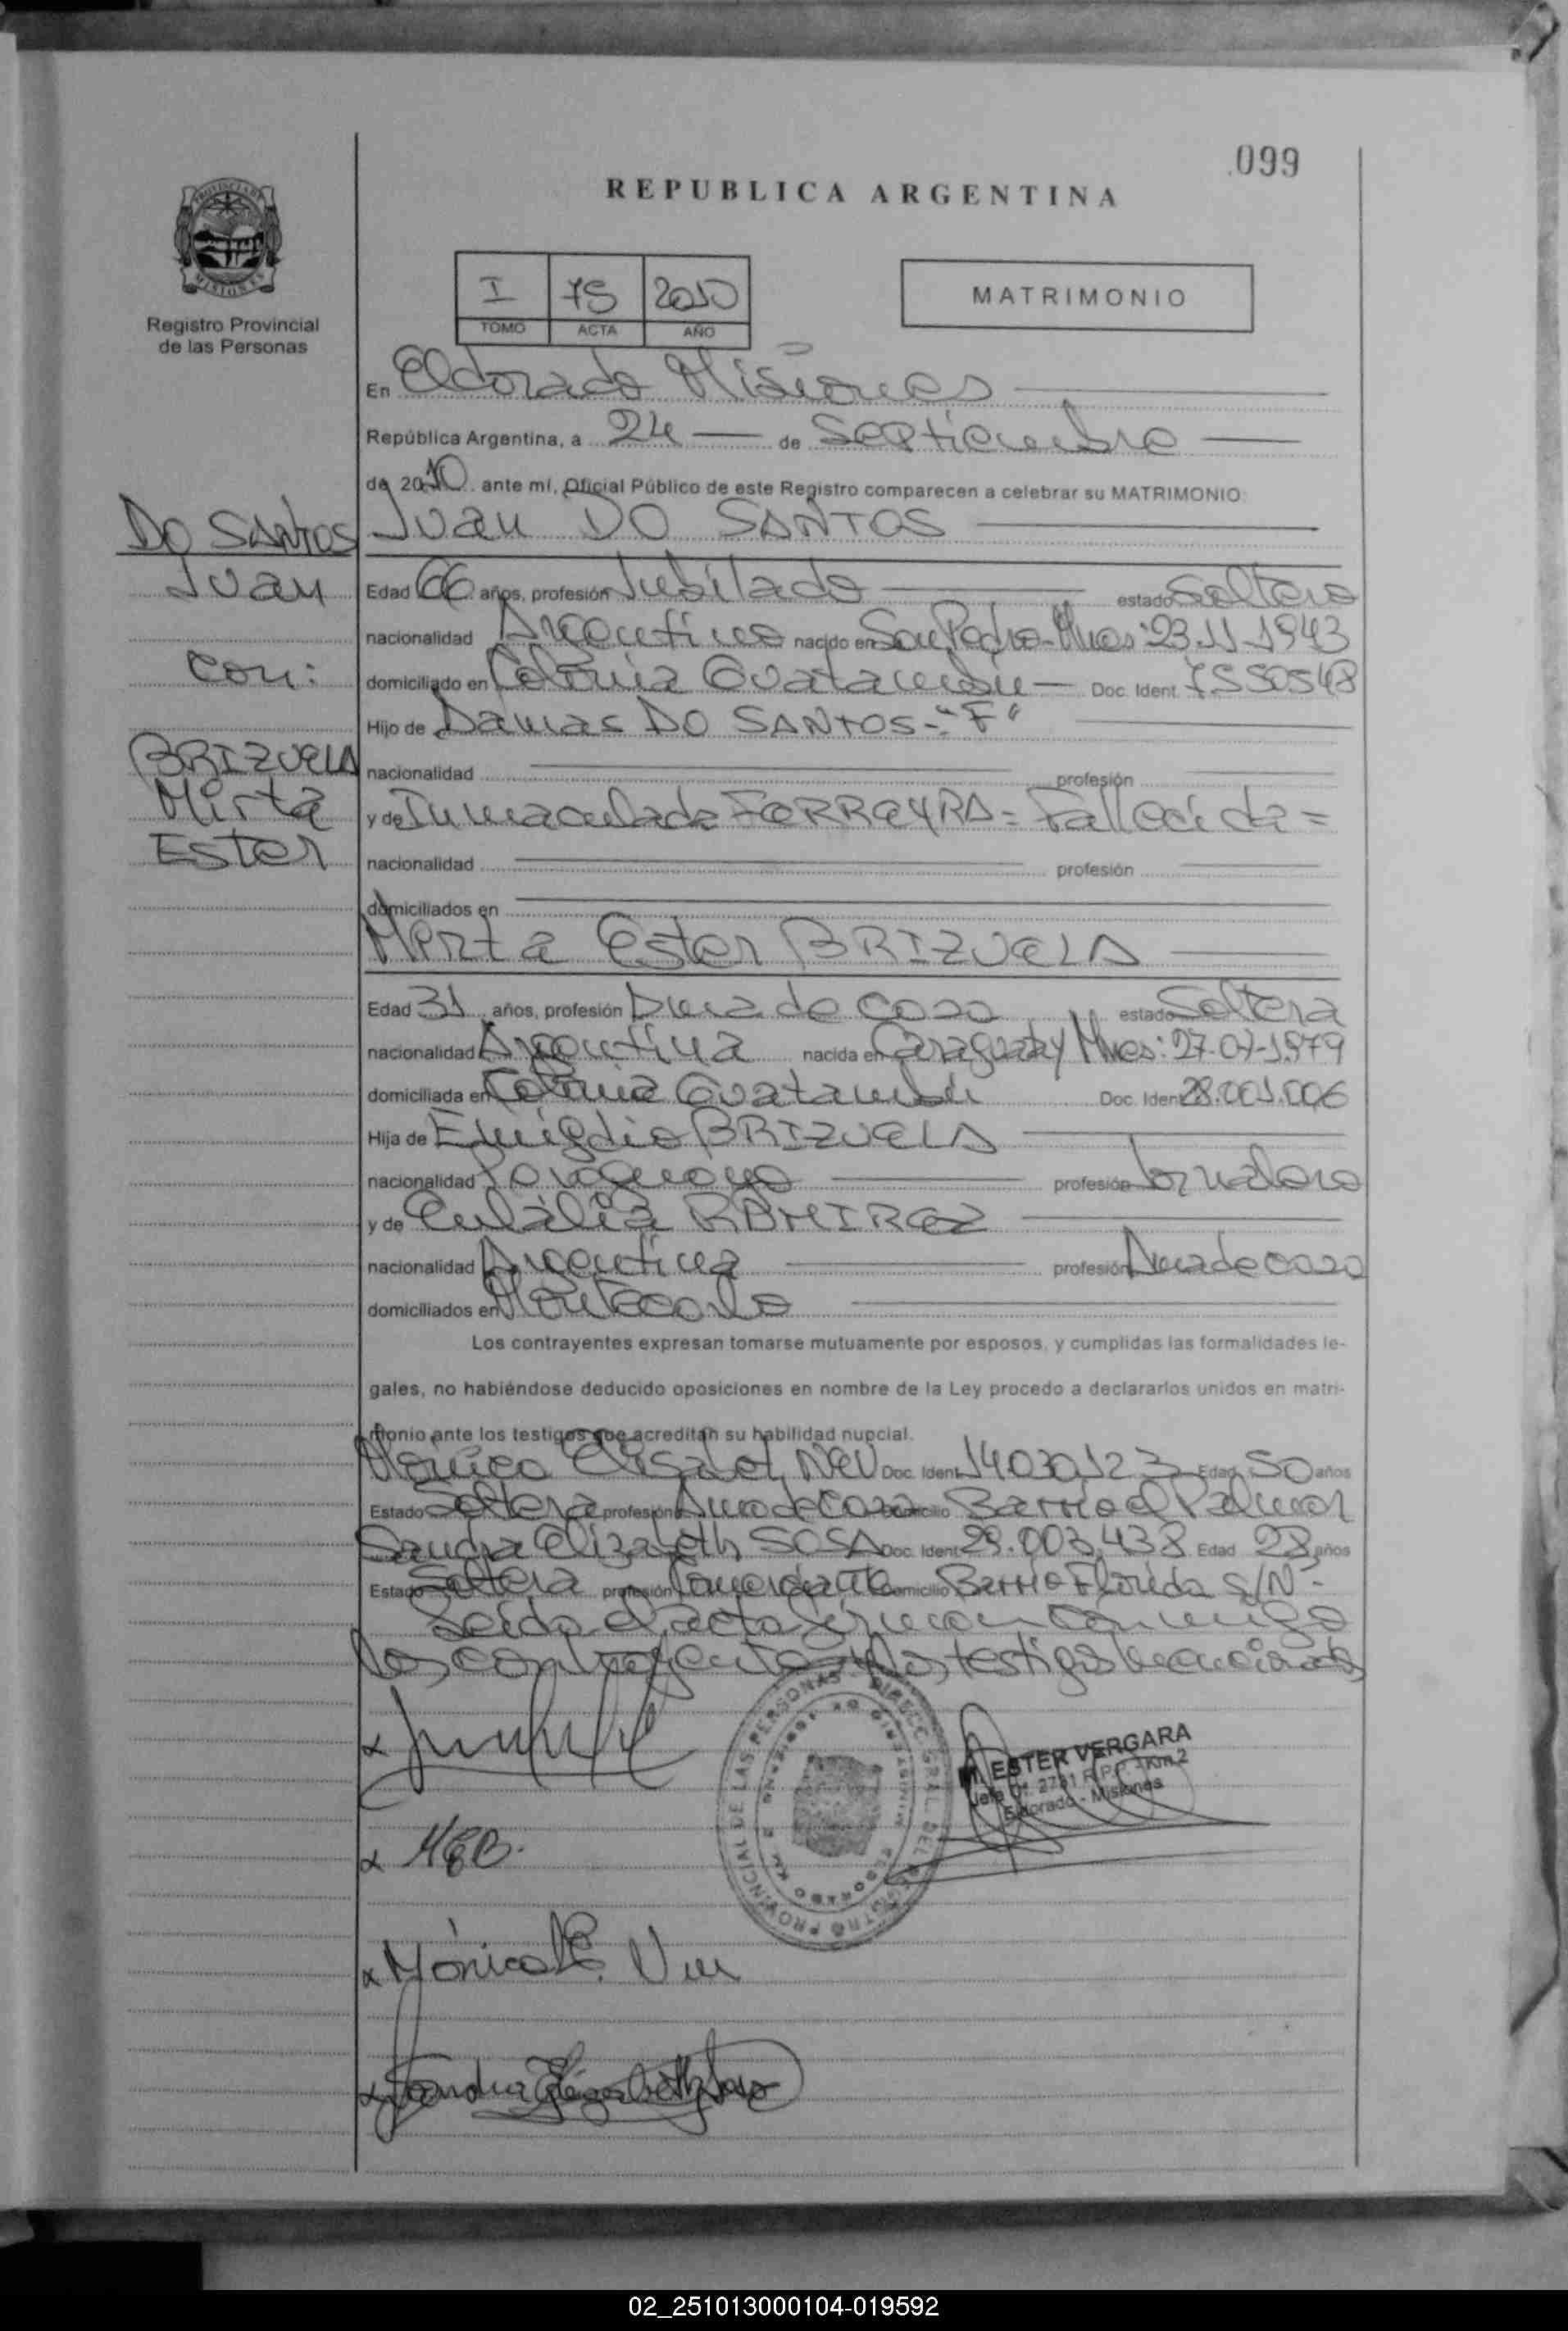 .099
REPUBLICA ARGENTINA
PROVINCIA DE
MISIONES
Registro Provincial
de las Personas
I 75 2010
TOMO ACTA AÑO
MATRIMONIO
En Eldorado Misiones
República Argentina, a 24 de Septiembre
de 2010 ante mí, Oficial Público de este Registro comparecen a celebrar su MATRIMONIO:
DO SANTOS
Juan
con:
BRIZUELA
Mirta
Ester
Juan DO SANTOS
Edad 66 años, profesión Jubilado estado Soltero
nacionalidad Argentino nacido en San Pedro-Mnes: 23.11.1943
domiciliado en Colonia Guatambú Doc. Ident. 7550548
Hijo de Damas DO SANTOS-"F"
nacionalidad profesión
y de Inmaculada FERREYRA = Fallecida =
nacionalidad profesión
domiciliados en
Mirta Ester BRIZUELA
Edad 31 años, profesión Ama de casa estado Soltera
nacionalidad Argentina nacida en Caraguatay Mnes: 27-07-1979
domiciliada en Colonia Guatambú Doc. Ident 28.001.006
Hija de Emigdio BRIZUELA
nacionalidad Paraguayo profesión Jornalero
y de Eulalia RAMIREZ
nacionalidad Argentina profesión Ama de casa
domiciliados en Montecarlo
Los contrayentes expresan tomarse mutuamente por esposos, y cumplidas las formalidades le-
gales, no habiéndose deducido oposiciones en nombre de la Ley procedo a declararlos unidos en matri-
monio ante los testigos que acreditan su habilidad nupcial.
Mónica Elisabet NEU Doc. Ident 14030123 Edad 50 años
Estado Soltera profesión Ama de casa Domicilio Barrio el Palmar
Sandra Elizabeth SOSA Doc. Ident 29.003.438 Edad 28 años
Estado Soltera profesión Comerciante Domicilio Barrio Florida S/N-
Leida el acta firman conmigo
los contrayentes y los testigos mencionados
PROVINCIAL DE LAS PERSONAS
ELDORADO KM 2
M. ESTER VERGARA
Jefa Of. 2731 R.P.P. - Km.2
Eldorado - Misiones
x MEB.
x Mónica E. Neu
x Sandra Elizabeth Sosa
02_251013000104-019592